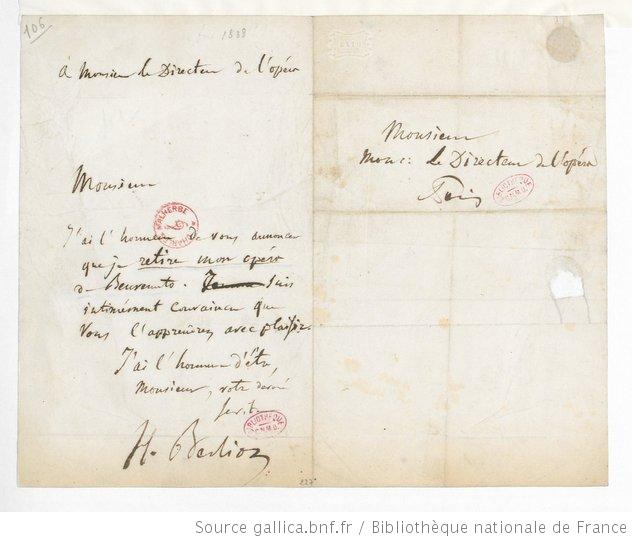 106
1838
à Monsieur le Directeur de l'opéra
Monsieur
J'ai l'honneur de vous annoncer
que je retire mon opéra
de Benvenuto. Je suis
intimément convaincu que
vous l'apprendrez avec plaisir.
J'ai l'honneur d'être,
Monsieur, votre dévoué
servit.
H. Berlioz
MALHERBE
BIBLIOTHÈQUE
C.N.M.D.
Monsieur
Monsr. Le Directeur de l'opéra
Paris
BIBLIOTHÈQUE
C.N.M.D.
227
Source gallica.bnf.fr / Bibliothèque nationale de France